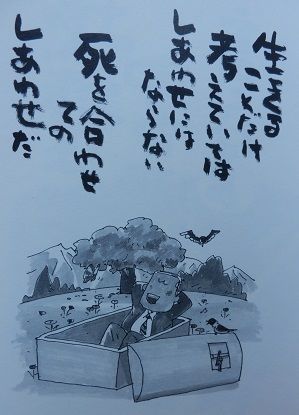 生きる
ことだけ
考えていては
しあわせには
ならない
死と合わせ
ての
しあわせだ